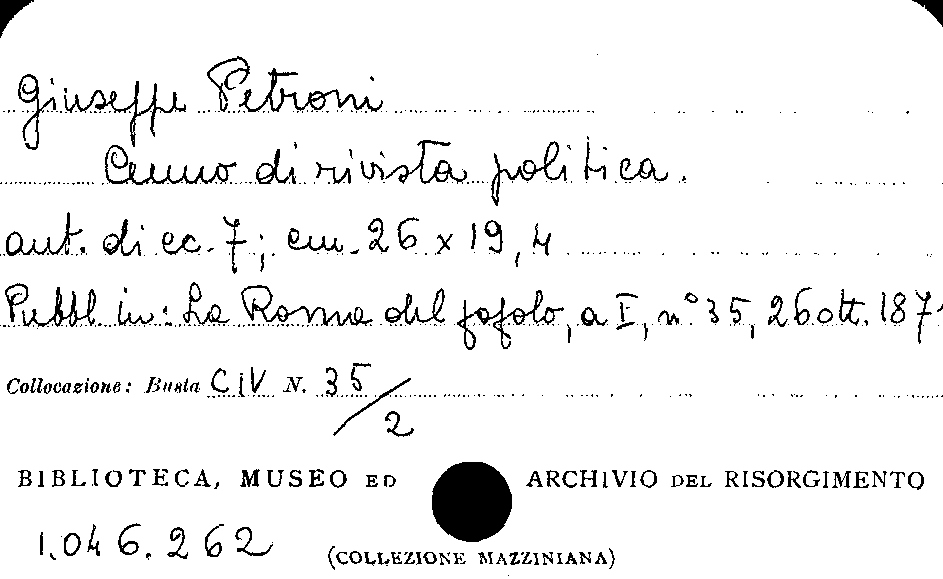 Giuseppe Petroni
Cenno di rivista politica.
aut. di cc. 7; cm. 26 x 19,4
Pubbl in: La Roma del popolo, a I, n° 35, 26 ott. 1871
Collocazione: Busta CIV N. 35/2
BIBLIOTECA, MUSEO ED ARCHIVIO DEL RISORGIMENTO
1.046.262
(COLLEZIONE MAZZINIANA)